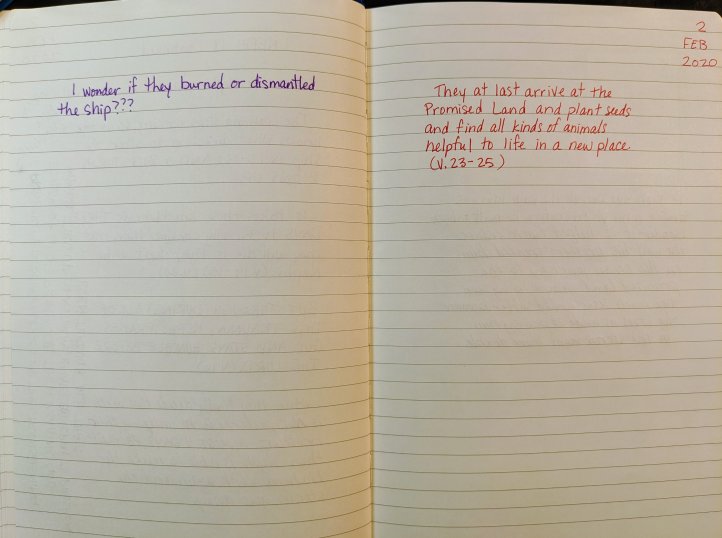 I wonder if they burned or dismantled
the ship???
2
FEB
2020
They at last arrive at the
Promised Land and plant seeds
and find all kinds of animals
helpful to life in a new place.
(V. 23-25)